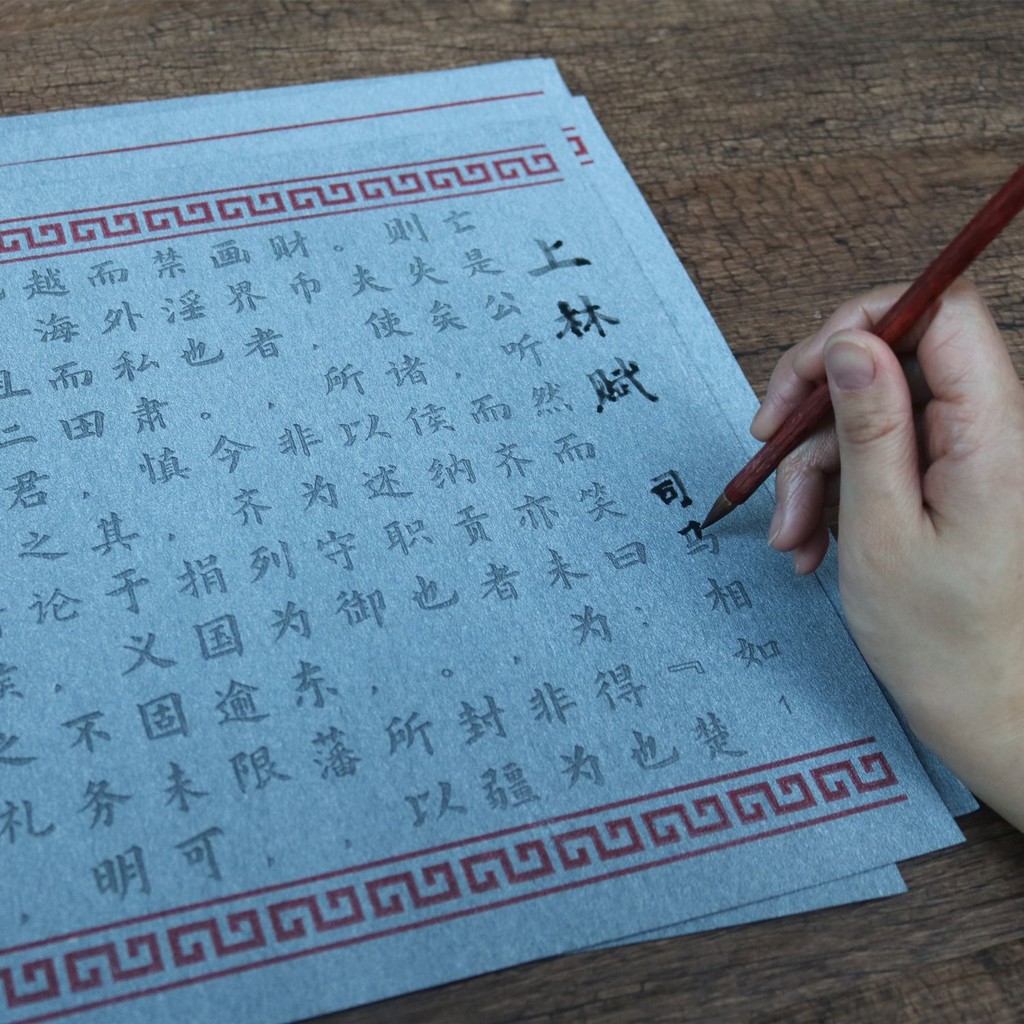 上林赋
司马相如 1
亡是公听然而笑曰：『楚
则失矣，而齐亦未为得也
。夫使诸侯纳贡者，非为
财币，所以述职也。封疆
画界者，非为守御，所以
禁淫也。今齐列为东藩，
而外私肃慎，捐国逾限，
越海而田，其于义固未可
且二君之论，不务明
之礼，